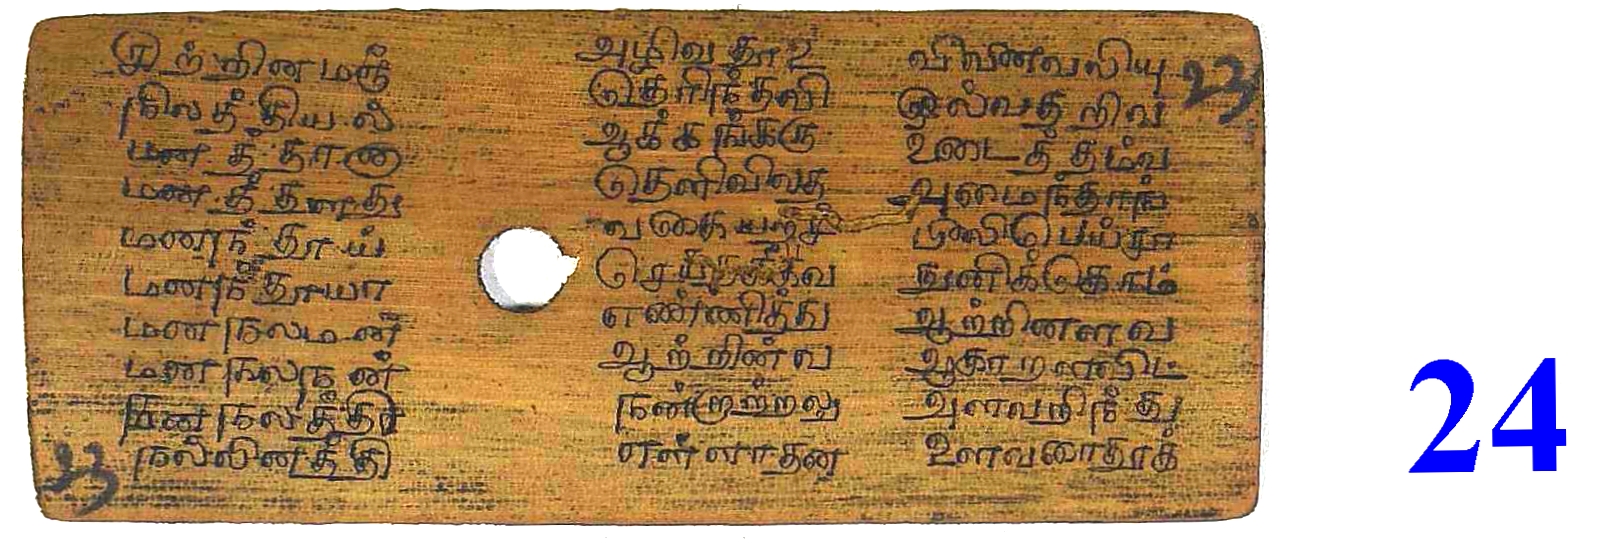 சிற்றினமஞ்
நிலத்தியல்
மனத்தான
மனத்துளது
மனந்தூய்
மனந்தூயா
மனநலமன்
மனநலநன்
மனநலத்தி
நல்லினத்தி
23
அழிவதூஉ
தெரிந்தவி
ஆக்கங்கரு
தெளிவிலத
வகையறச்சூ
செய்தக்கவ
எண்ணித்து
ஆற்றின்வ
நன்றாற்றலு
எள்ளாதன
வினைவலியு
ஒல்வதறிவ
உடைத்தம்வ
அமைந்தாங்
பீலிபெய்சா
நுனிக்கொம்
ஆற்றினளவ
ஆகாறளவிட்
அளவறிந்து
உளவரைதூக்
23
24